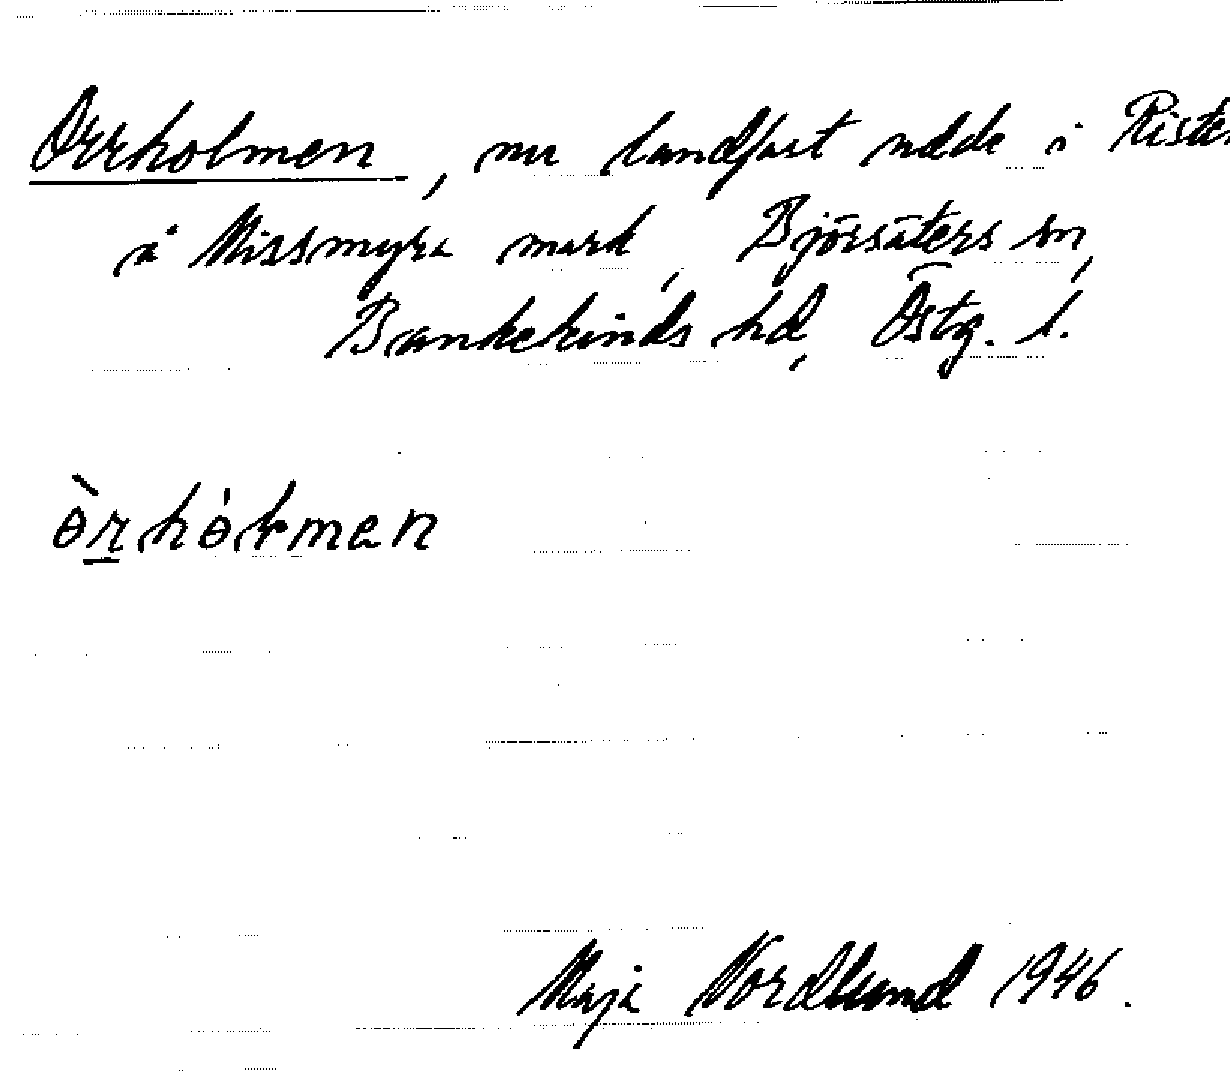 Orrholmen, nu landfast udde i Risten
å Missmyra mard, Björsäters sn,
Bankekinds hd, Östg. l.
Maja Nordlund 1946.